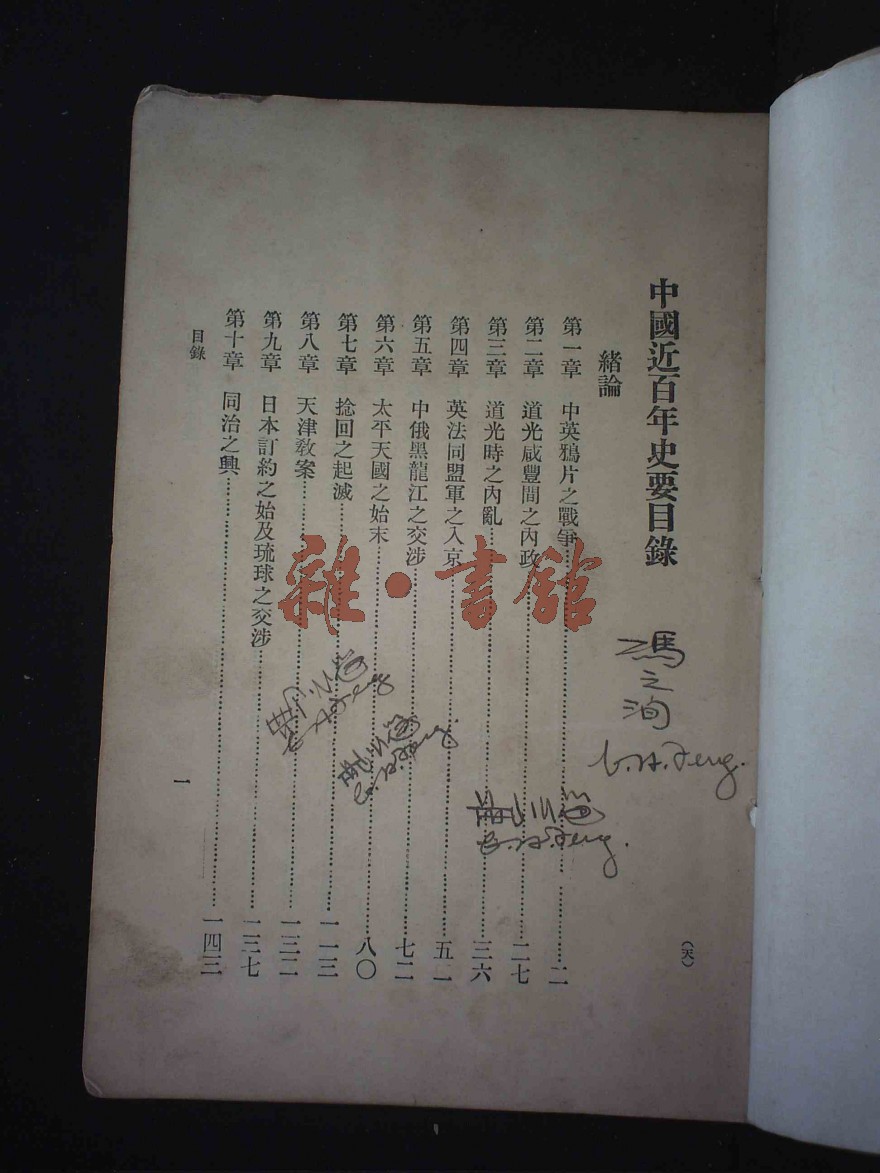 中國近百年史要目錄
緒論
第一章　中英鴉片之戰爭……二
第二章　道光咸豐間之內政……二七
第三章　道光時之內亂……三六
第四章　英法同盟軍之入京……五一
第五章　中俄黑龍江之交涉……七二
第六章　太平天國之始末……八〇
第七章　捻回之起滅……一一三
第八章　天津教案……一三二
第九章　日本訂約之始及琉球之交涉……一三七
第十章　同治之興……一四三
目錄
一
(天)
雜·書館
馮之洵